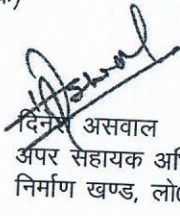 दिनेश असवाल
अपर सहायक अभि
निर्माण खण्ड, लो